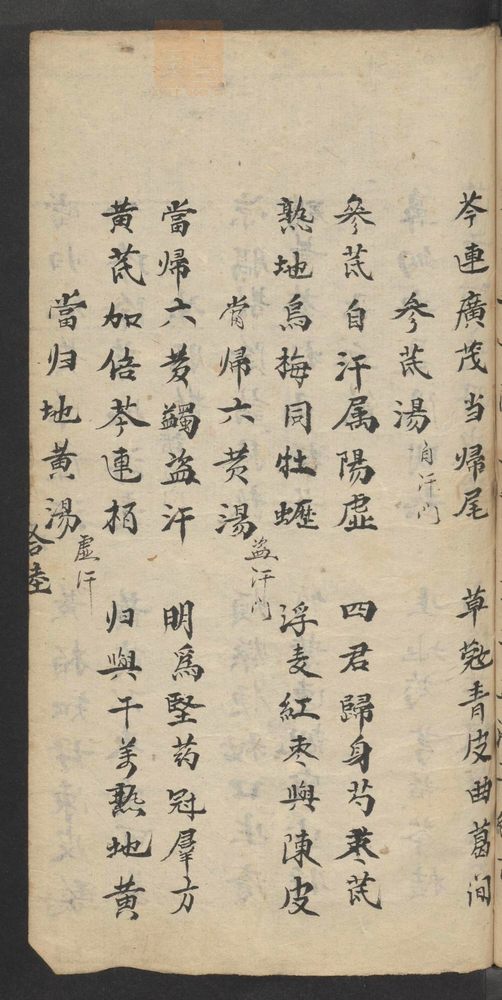 芩連廣茂当歸尾　草䓻青皮曲葛间
參芪湯 自汗门
參芪自汗属陽虛　四君歸身芍枣芪
熟地烏梅同牡蠣　浮麦紅枣與陳皮
當帰六黄湯 盗汗门
當帰六黄蠲盗汗　明爲堅药冠羣方
黄芪加倍芩連栢　归與干姜熟地黄
當归地黄湯 虛汗